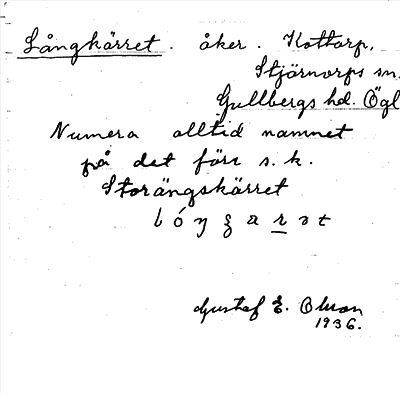 Långkärret. åker. Kottorp,
Stjärnorps sn.
Gullbergs hd. Ögl
Numera alltid namnet
på det förr s.k.
Storängskärret
l ó ŋ ʒ a r ə t
Gustaf E. Olson
1936.